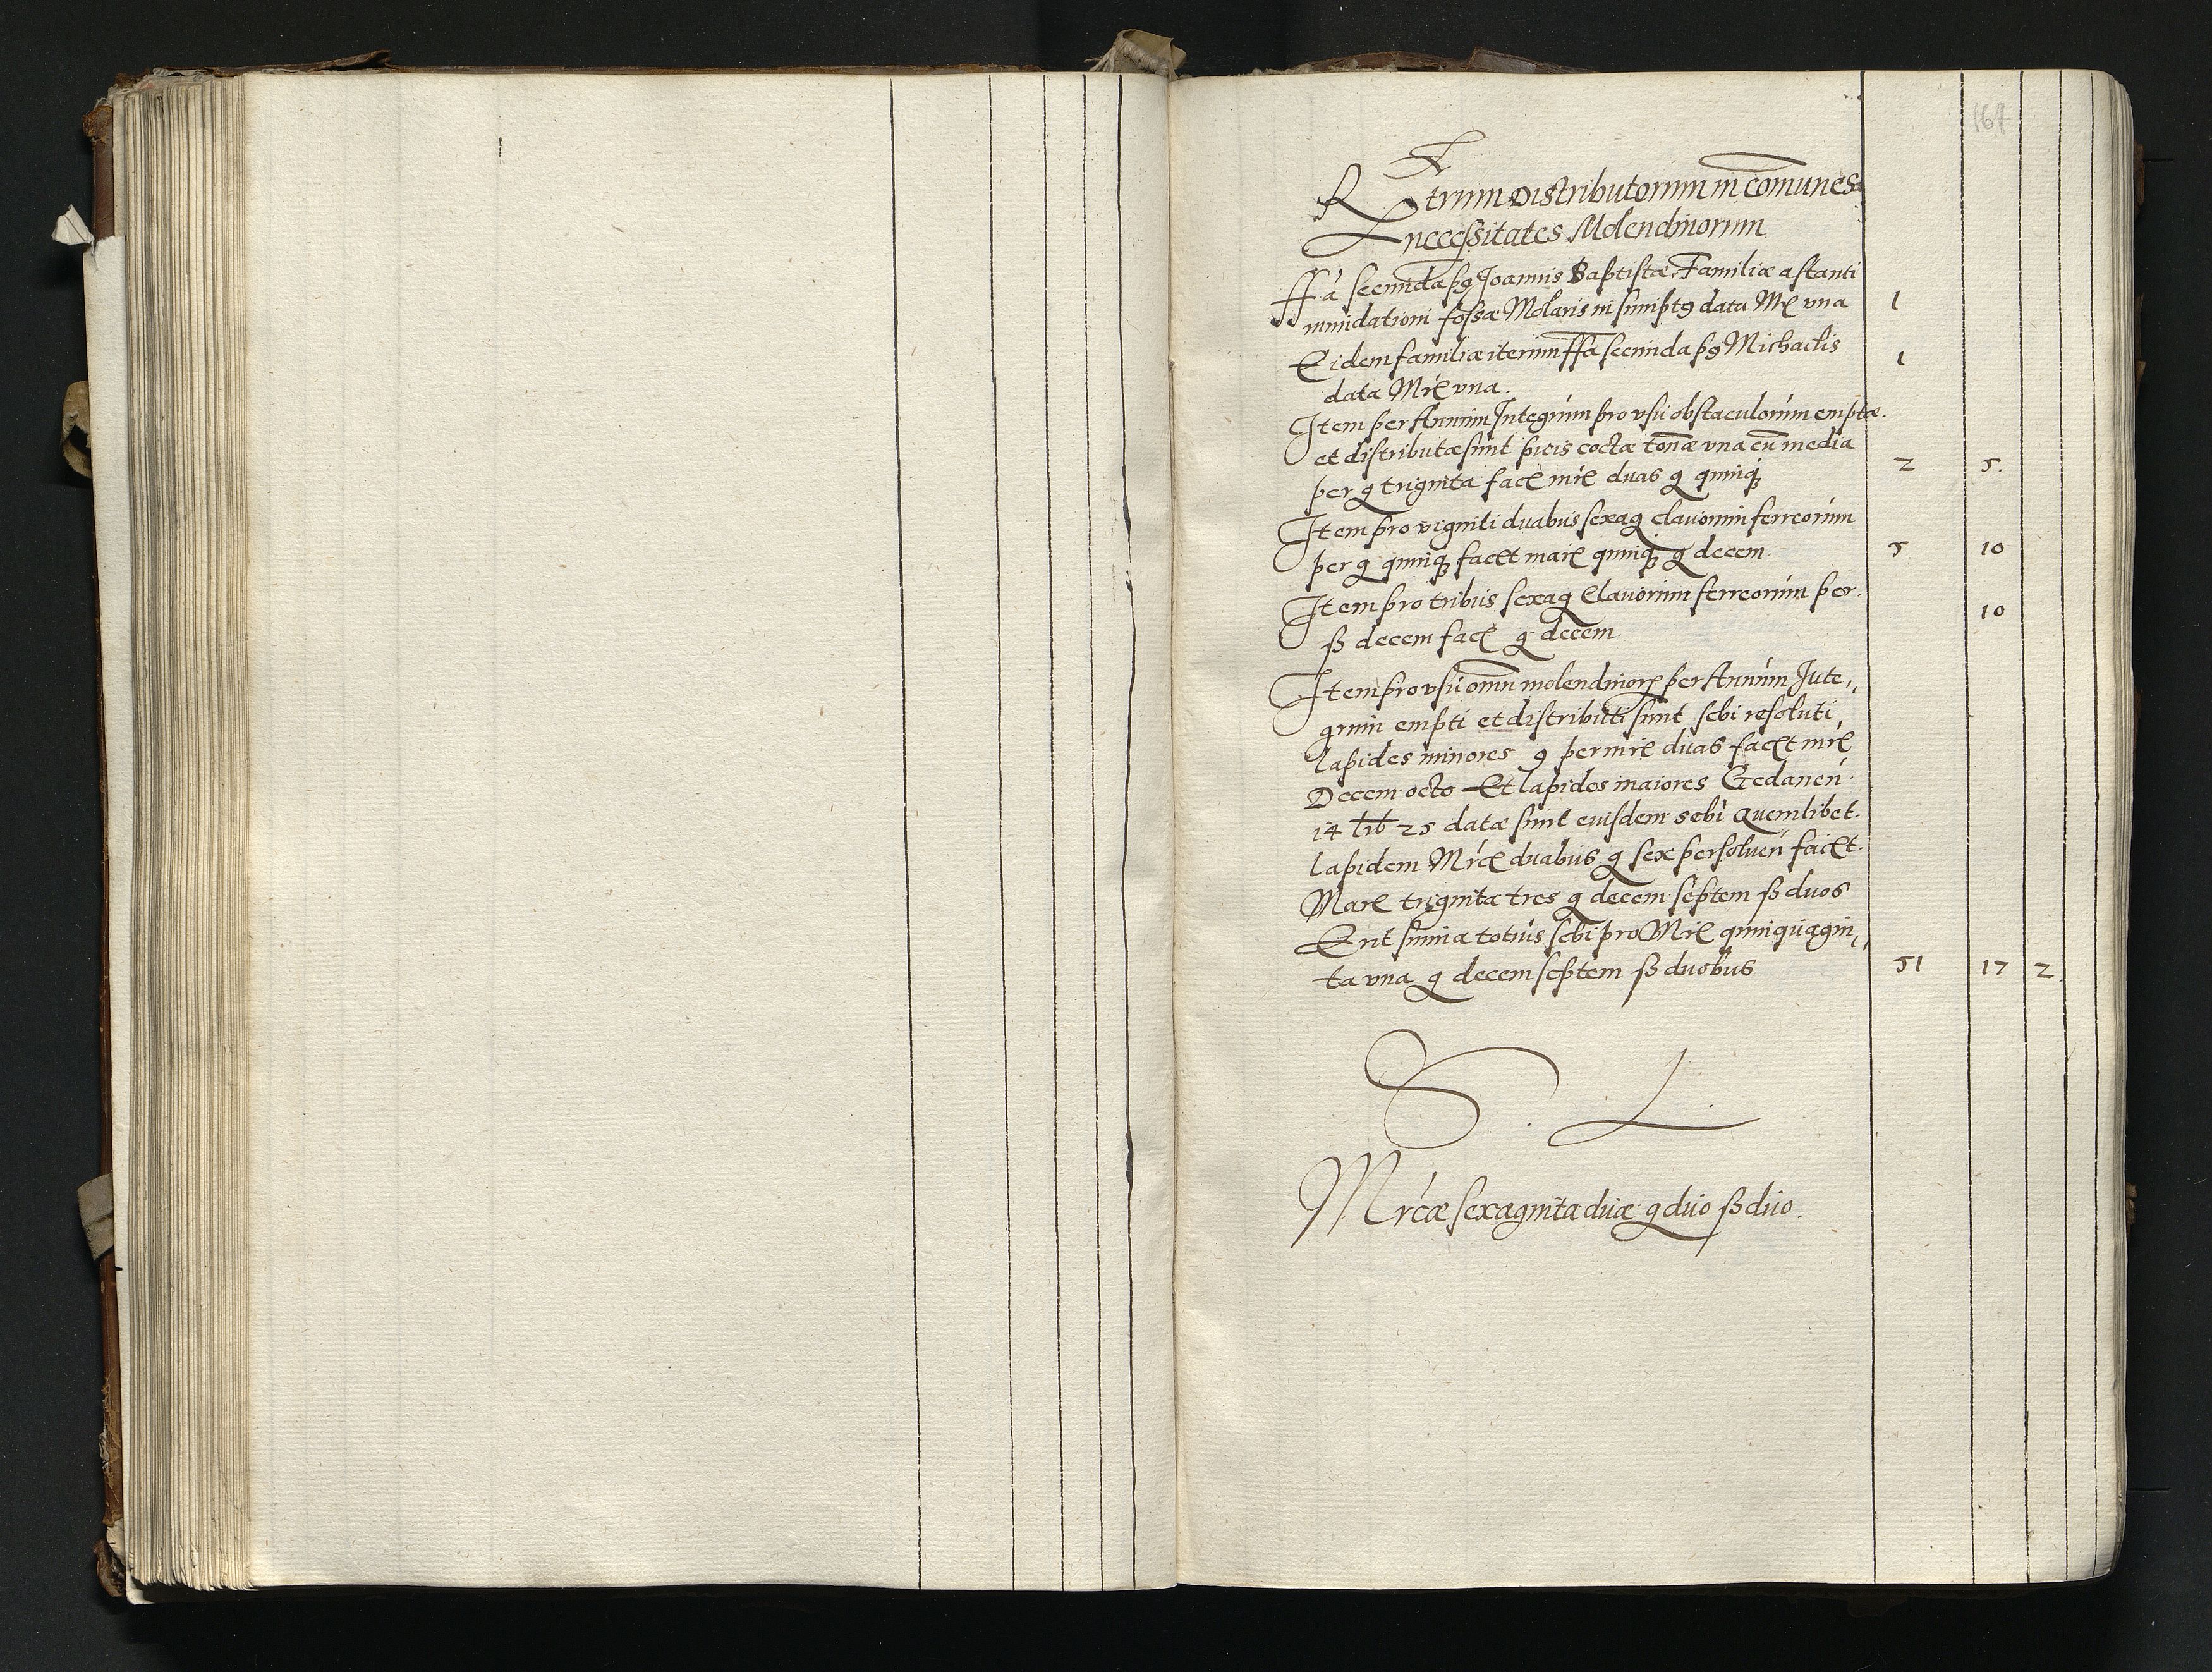 167
Rerum Distributorum in comunes
necessitates Molendinorum
ffa secunda psꝫ Joannis Baptistæ Familiæ astanti
mundationi fossæ Molaris in sumptꝰ data Mr̃ vna 1
Eidem familiæ iterum ffa secunda psꝫ Michaelis 1
data Mrč vna.
Item per Annum Integrum pro vsu obstaculorum emptæ.
et distributæ sunt picis coctæ tonæ vna cũ media
per g triginta facč mrč duas g quinqꝫ 2 5.
Item pro viginti duabus sexag clauorum ferreorum
per g quinqꝫ facčt marč quinqꝫ g decem 5 10
Item pro tribus sexag Clauorum ferreorum per
ß decem facč g decem 10
Item pro vsu omñ molendinorꝝ per Annum Inte„
grum empti et distributi sunt sebi resoluti
lapides minores 9 per mrč duas facčt mrč
Decem octo Et lapides maiores Gedaneń
14 lib 25 datæ sunt euisdem sebi Quemlibet
lapidem Mrč duabus g sex persolueń facčt
Marč triginta tres g decem septem ß duos
Erit suma totius sebi pro Mrč quinquagin„
ta vna g decem septem ß duobus 51 17 2
S. L.
Mrcæ sexaginta duæ g duo ß duo.